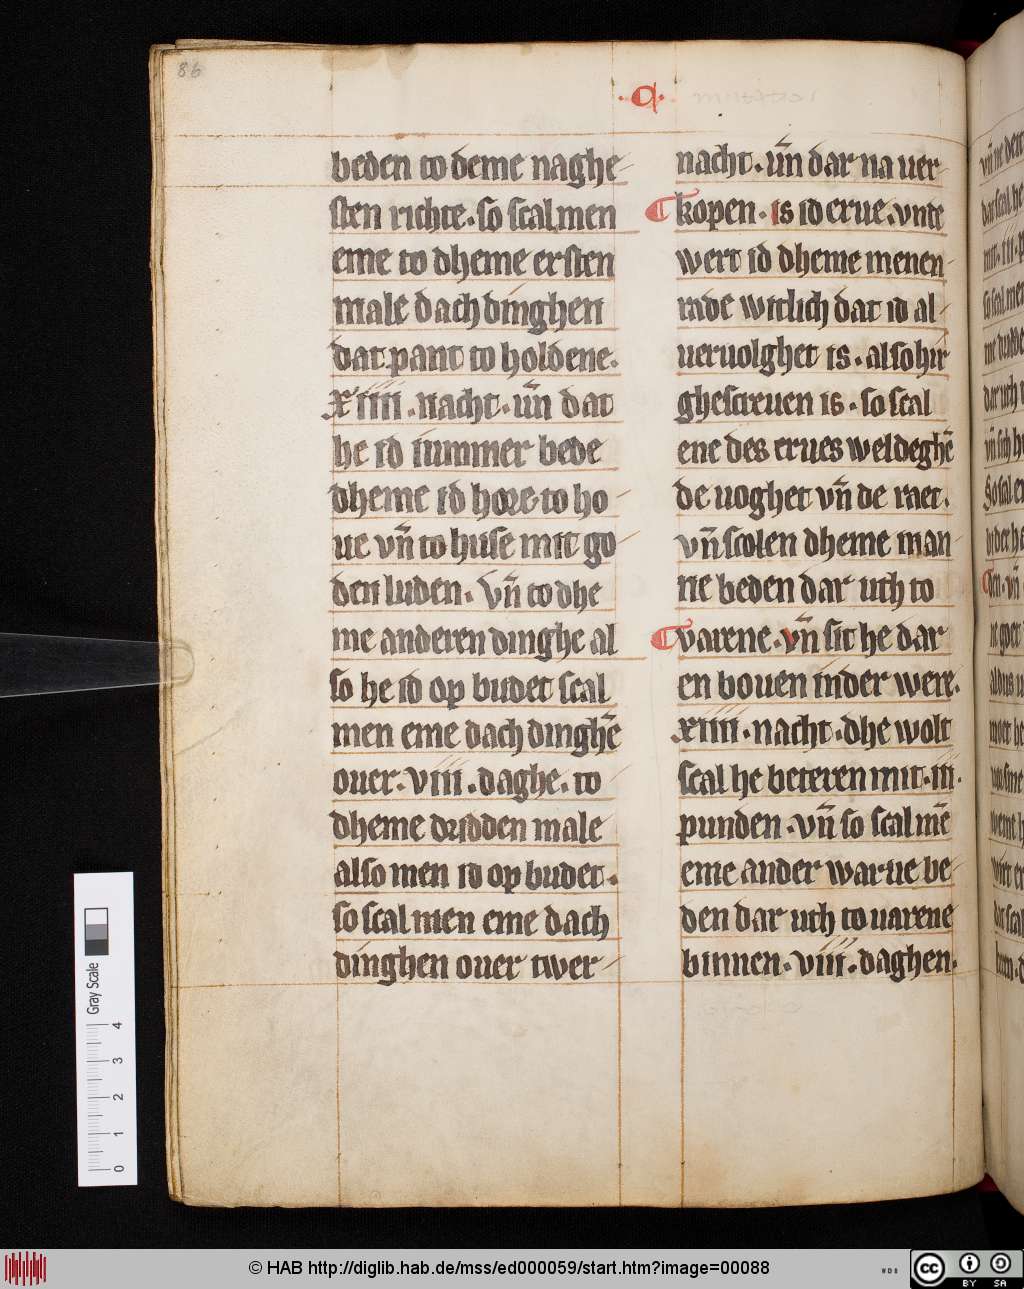 86
·q·
beden to deme naghe-
sten richte. so scal men
eme to dheme ersten
male dach dinghen
dat pant to holdene.
xiiii. nacht. vn̄ dat
he id iummer bede
dheme id hore. to ho-
ue vn̄ to huse mit go-
den luden. Vn̄ to dhe
me anderen dinghe al
so he id op budet scal
men eme dach dinghē
ouer. viii. daghe. to
dheme dridden male
also men id op budet.
so scal men eme dach
dinghen ouer twer-
nacht. vn̄ dar na uer-
kopen. is id erue. vnte
wert id dheme menen-
rade witlich dat id al-
ueruolghet is. also hir
ghescreuen is. so scal
ene des erues weldeghē
de uoghet vn̄ de raet.
vn̄ scolen dheme man-
ne beden dar uth to
varene. vn̄ sit he dar
en bouen inder were.
xiiii. nacht. dhe wolt
scal he beteren mit. iii.
punden. vn̄ so scal mē
eme ander warue be-
den dar uth to uarene
binnen. viii. daghen.
Gray Scale
0 1 2 3 4
© HAB http://diglib.hab.de/mss/ed000059/start.htm?image=00088
WDB
cc BY SA